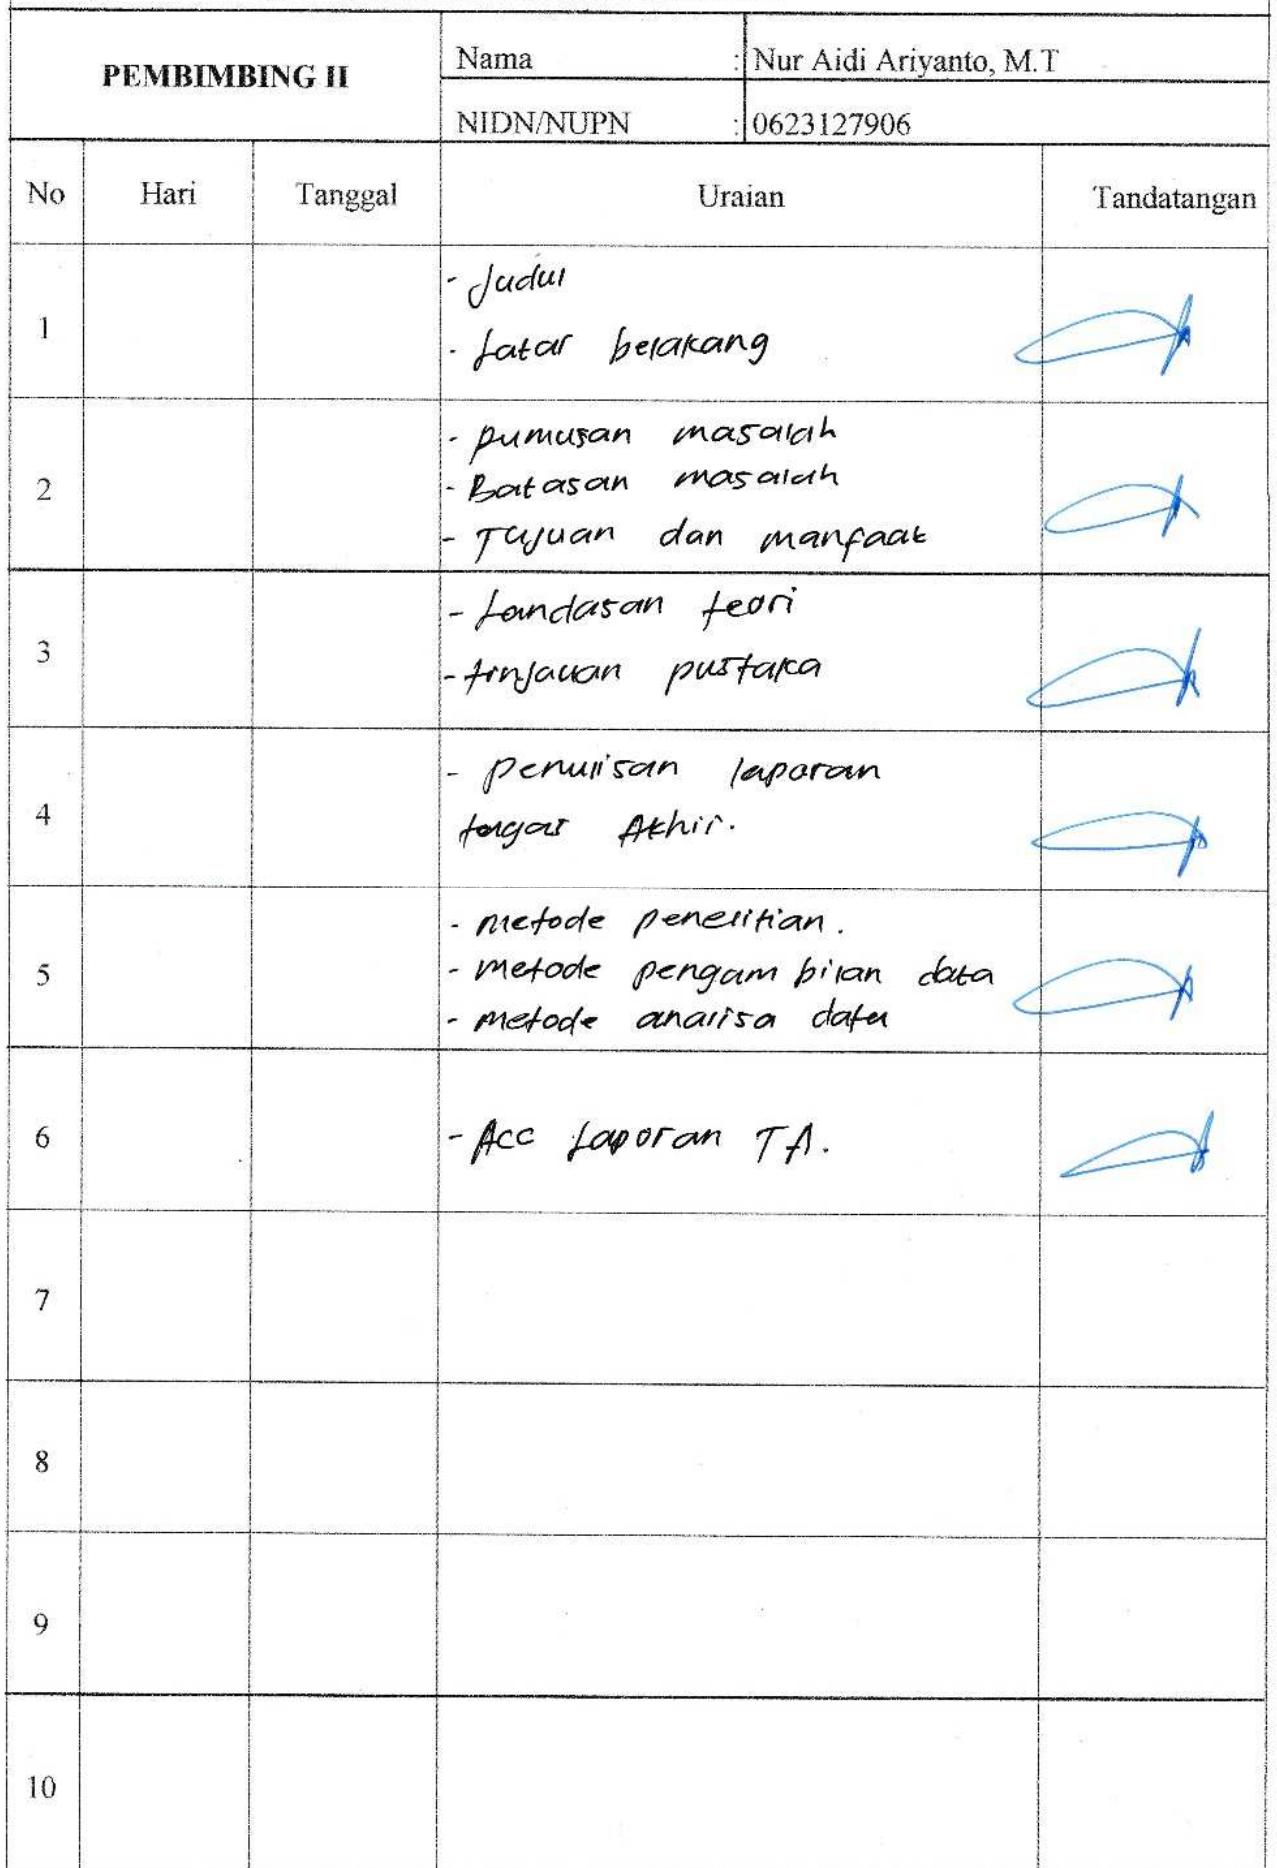 PEMBIMBING II
Nama : Nur Aidi Ariyanto, M.T
NIDN/NUPN : 0623127906
No Hari Tanggal Uraian Tandatangan
1
- Judul
- Latar belakang
2
- Rumusan masalah
- Batasan masalah
- Tujuan dan manfaat
3
- Landasan teori
- tinjauan pustaka
4
- penulisan laporan
tugas Akhir.
5
- metode penelitian.
- metode pengambilan data
- metode analisa data
6
- Acc Laporan TA.
7
8
9
10